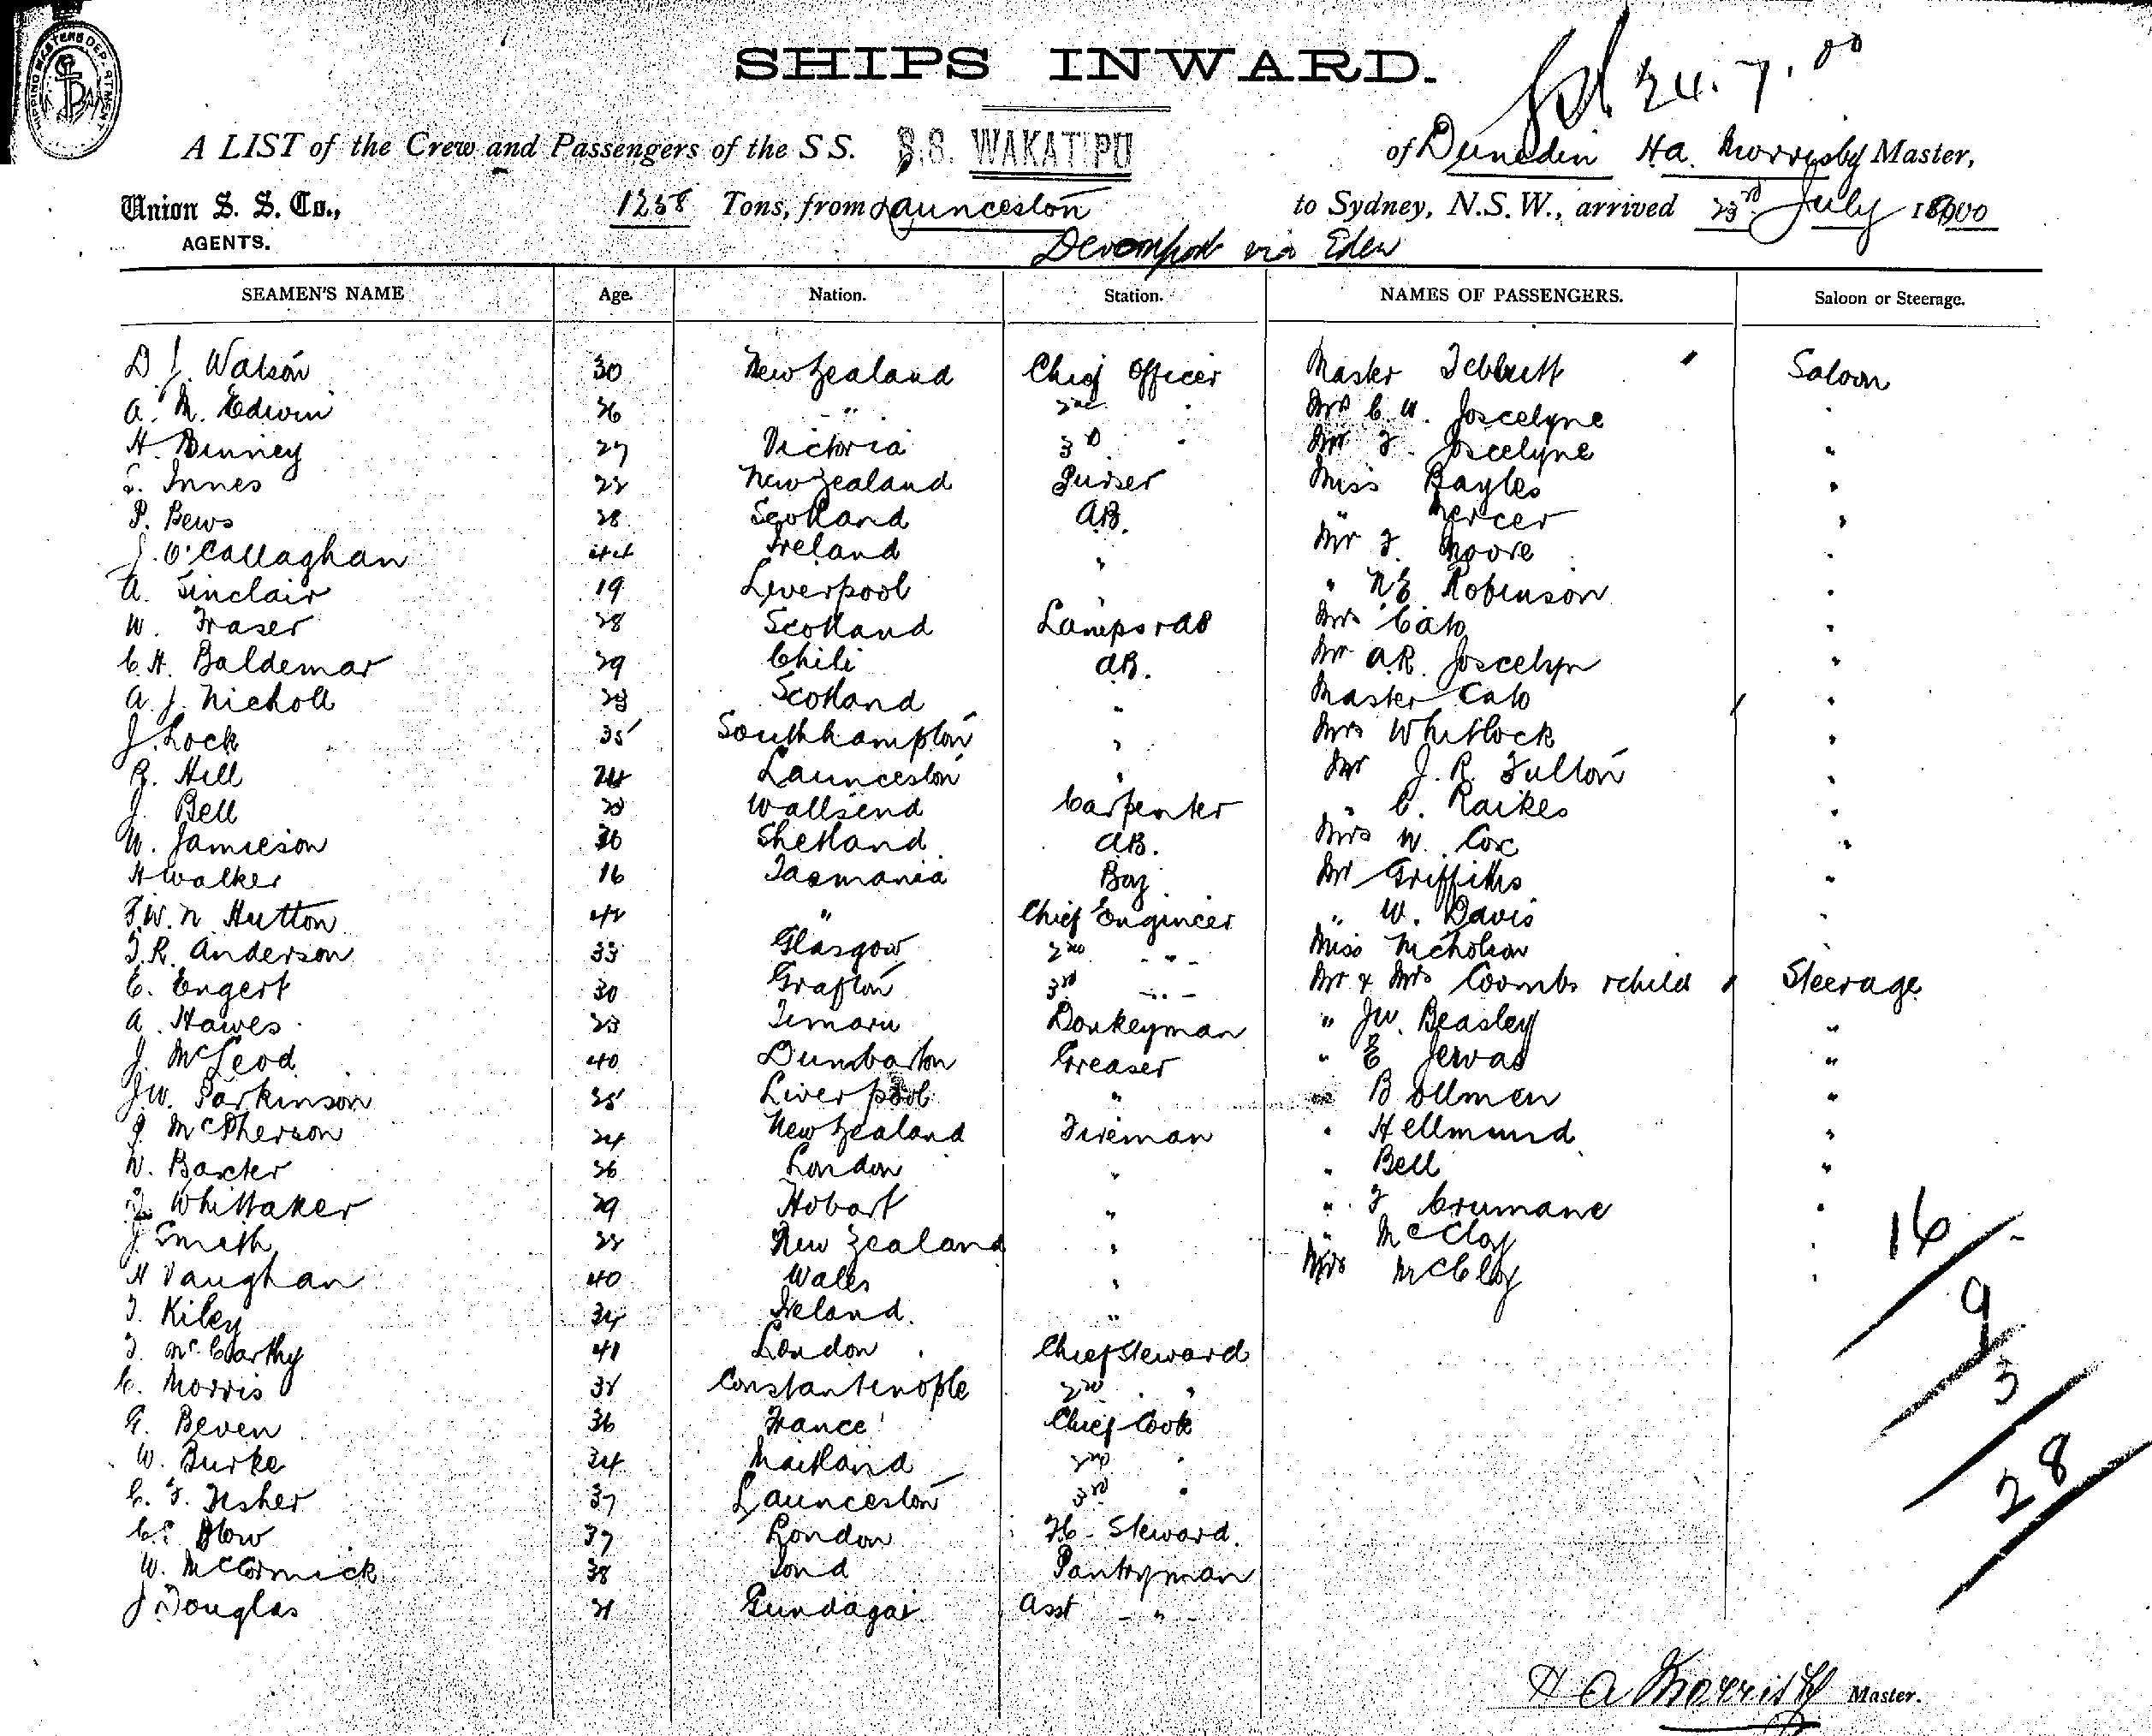 SHIPS INWARD.
24.7.00
A LIST of the Crew and Passengers of the S S. S.S. WAKATIPU of Dunedin Ha. Morrisby Master,
Union S. S. Co., 1258 Tons, from Launceston to Sydney, N.S.W., arrived 23rd July 1900
AGENTS. Devonport via Eden
SEAMEN'S NAME Age. Nation. Station. NAMES OF PASSENGERS. Saloon or Steerage.
D J. Watson 30 New Zealand Chief Officer Master Tebbutt " Saloon
A. M. Edwin 26 " 2nd " Mrs C W. Joscelyne "
H. Binney 27 Victoria 3rd " Mr F. Joscelyne "
Innes 22 New Zealand Purser Miss Bayles "
P. Bews 28 Scotland AB. " Mercer "
J. O'Callaghan 44 Ireland " Mr F. Moore "
A. Sinclair 19 Liverpool " " N E Robinson "
W. Fraser 28 Scotland Lamps &AB Mrs Cato "
C.H. Baldemar 29 Chili AB. Mr A.R. Joscelyn "
A. J. Nicholl Scotland " Master Cato "
J. Lock 35 Southhampton " Mrs Whitlock "
Hill 24 Launceston " Mr J. R. Fulton "
J. Bell Wallsend Carpenter " C. Raikes "
W. Jamieson Shetland AB. Mrs W. Cox "
H Walker 16 Tasmania Boy Mr Griffiths "
F.W. N Hutton 42 " Chief Engineer " W. Davis "
T. R. Anderson 33 Glasgow 2nd " Miss Nicholson "
E. Engert 30 Grafton 3rd " Mr & Mrs Coombs &child Steerage
A. Hawes 23 Timaru Donkeyman " JW. Beasley "
J. McLeod 40 Dumbarton Greaser " E Jervas "
JW. Parkinson 25 Liverpool " " Bollmen "
J. McPherson 24 New Zealand Fireman " Hellmund "
W. Baxter 26 London " " Bell "
Whittaker 29 Hobart " " F Crumane "
J Smith 22 New Zealand " " McCloy " 16
H Vaughan 40 Wales " Mrs McCloy "
T. Kiley 34 Ireland. " 9
T. McCarthy 41 London Chief Steward 3
C. Morris 38 Constantinople 2nd "
G. Beven 36 France Chief Cook
W. Burke 24 Maitland 2nd " 28
C. F. Fisher 37 Launceston 3rd "
Blow 37 London Steward.
W. McCormick 38 Lond Pantryman
J Douglas 21 Gundagai Asst "
H A Morrisby Master.